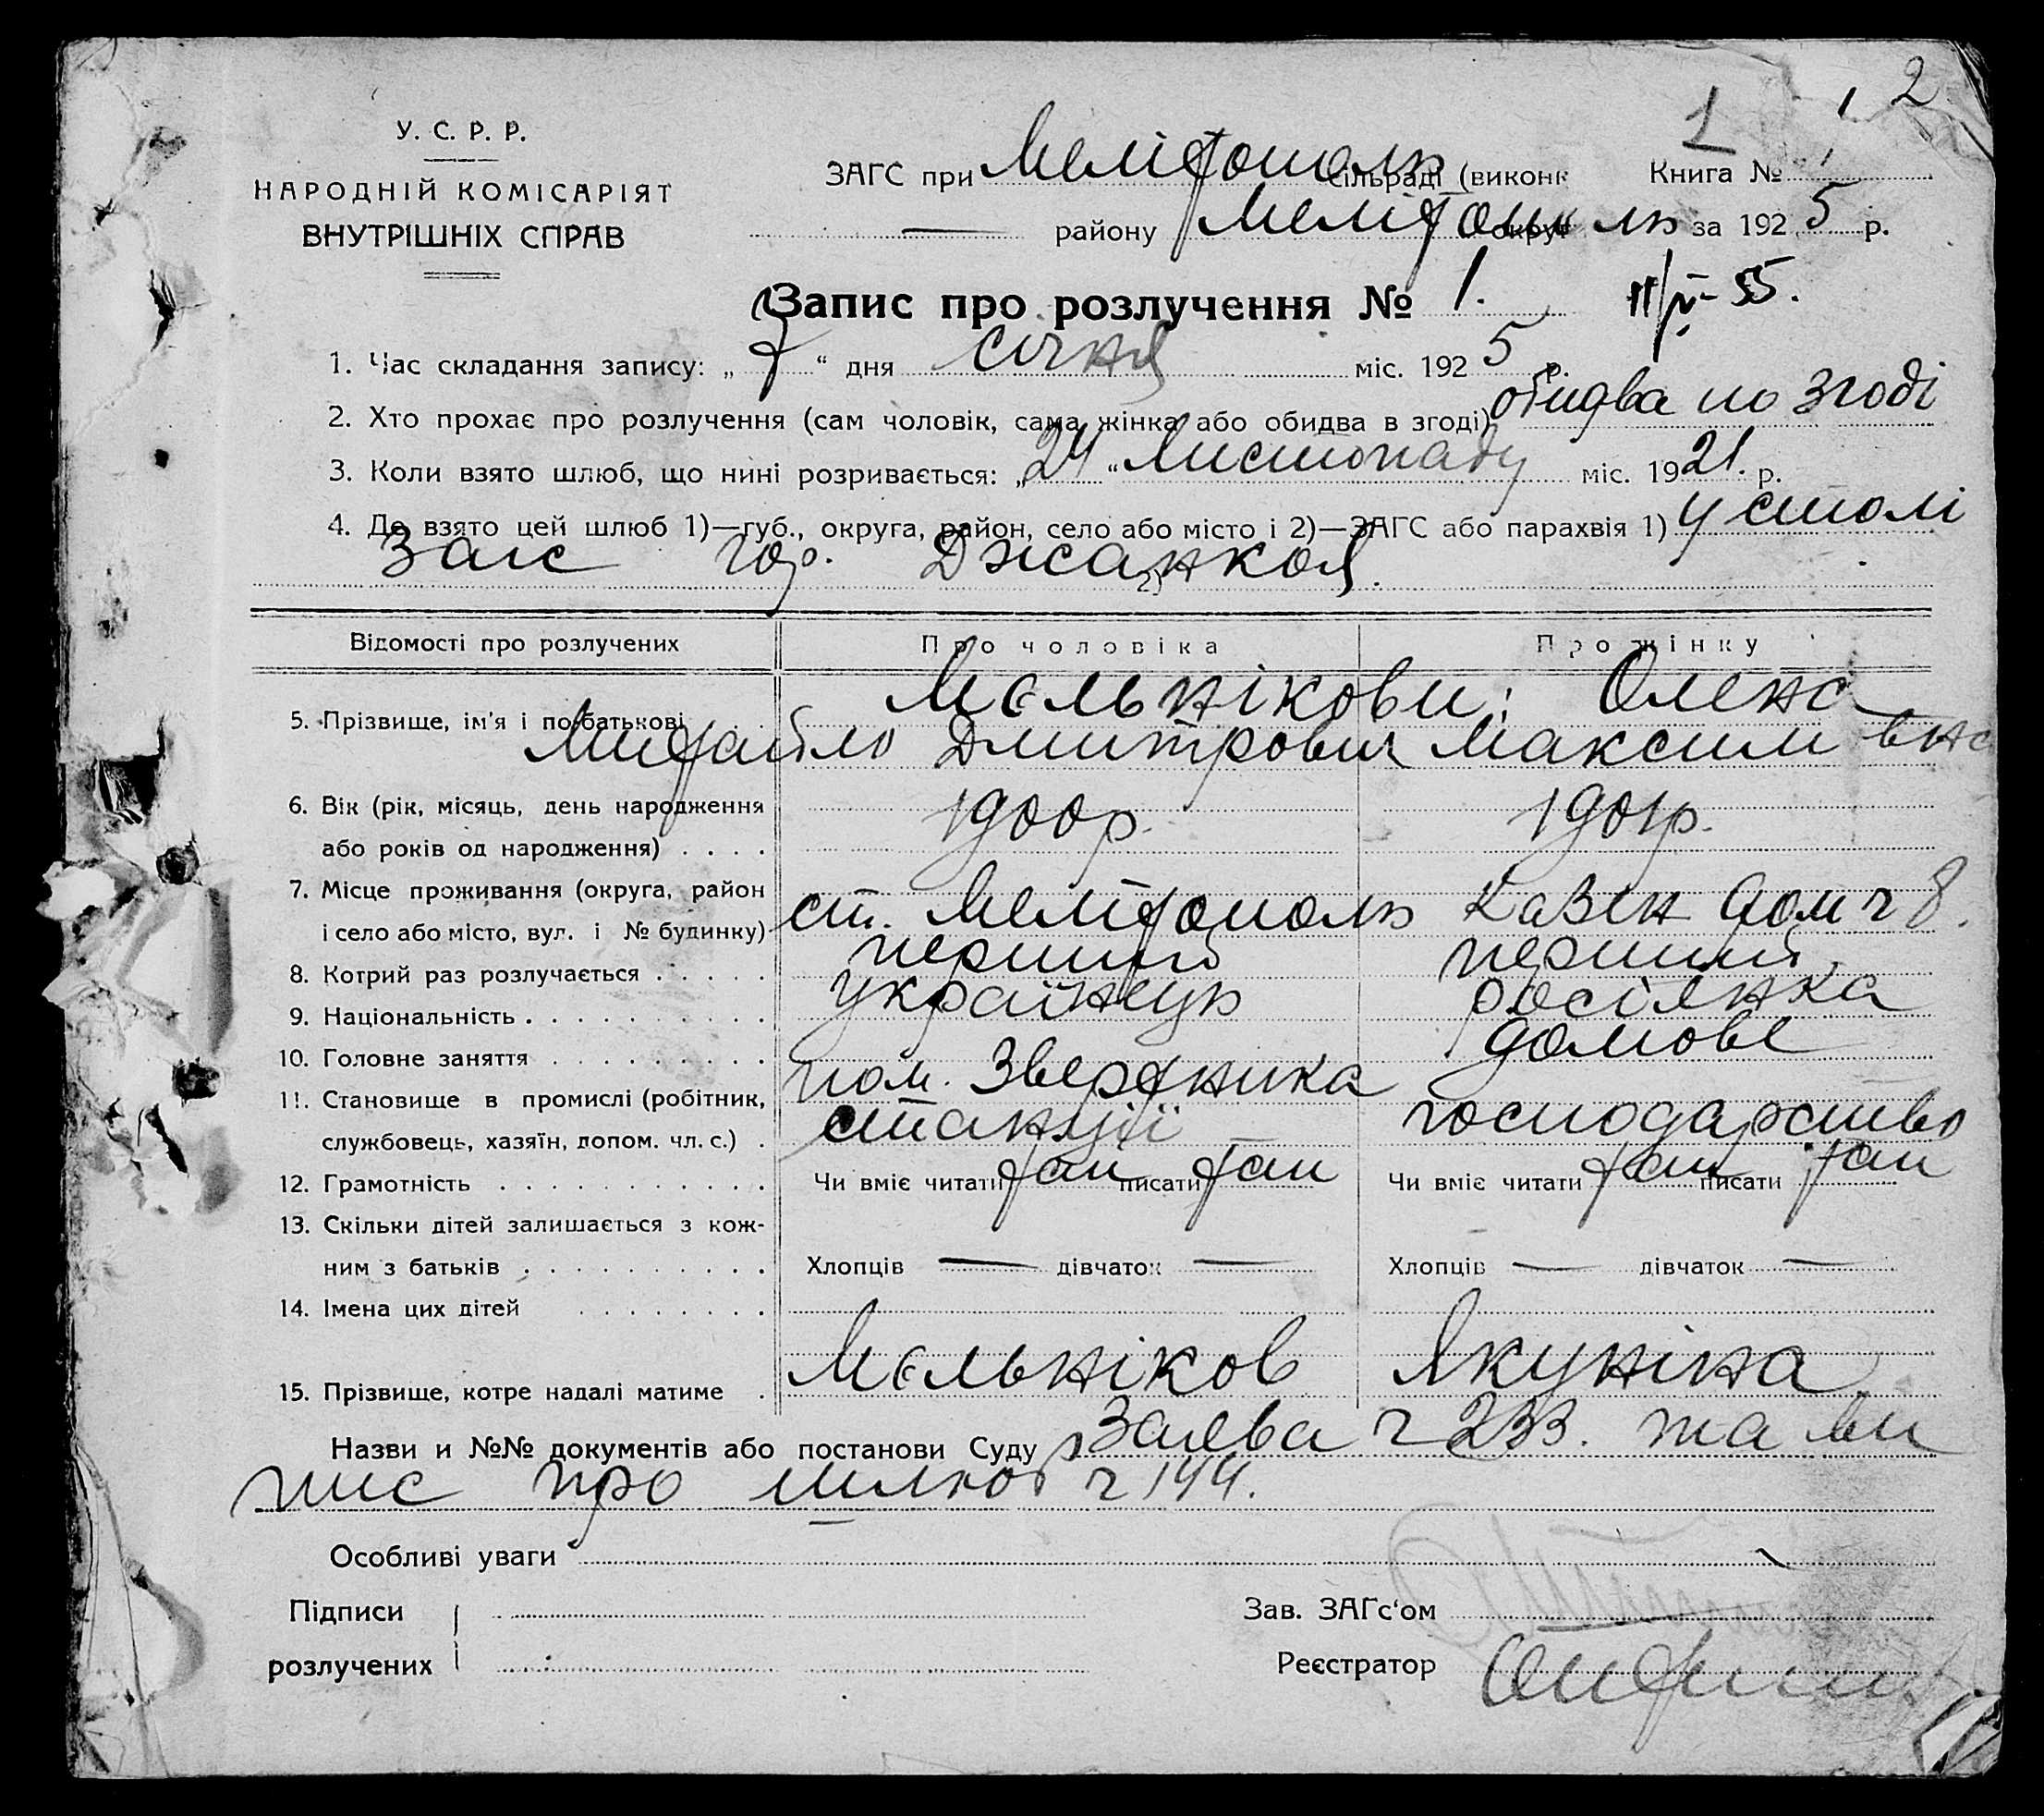 1 1 2
У. С. Р. Р.
НАРОДНІЙ КОМІСАРІЯТ
ВНУТРІШНІХ СПРАВ
ЗАГС при Мелітополь сільраді (виконк Книга № 1
— району Мелітополь округ за 1925 р.
Запис про розлучення № 1.
1. Час складання запису: „7“ дня січня міс. 1925 р.
2. Хто прохає про розлучення (сам чоловік, сама жінка або обидва в згоді) обидва по згоді
3. Коли взято шлюб, що нині розривається: „24“ Листопаду міс. 1921. р.
4. Де взято цей шлюб 1)—губ., округа, район, село або місто і 2)—ЗАГС або парахвія 1) у столі
Загс гор. Джанкоя. 2)
Відомості про розлучених Про чоловіка Про жінку
5. Прізвище, ім'я і по батькові Мєльнікови: Олена
Михайло Дмитрович Максимівна
6. Вік (рік, місяць, день народження 1900р. 1901р.
або років од народження) . . . .
7. Місце проживання (округа, район
і село або місто, вул. і № будинку) ст. Мелітополь Казен дом ч 8.
8. Котрий раз розлучається . . . . . перший перший
9. Національність . . . . . . . . . . українець росіянка
10. Головне заняття . . . . . . . . . пом. домове
11. Становище в промислі (робітник,
службовець, хазяїн, допом. чл. с.) . станції господарство
12. Грамотність . . . . . . . . . . . Чи вміє читати так писати так Чи вміє читати так писати так
13. Скільки дітей залишається з кож-
ним з батьків . . . . . . . . . . Хлопців — дівчаток — Хлопців — дівчаток —
14. Імена цих дітей . . . . . . . .
15. Прізвище, котре надалі матиме . Мєльніков Якуніна
Назви и №№ документів або постанови Суду Заява ч 233. та ви
пис про шлюб ч 144.
Особливі уваги
Підписи Зав. ЗАГс‘ом
розлучених Реєстратор